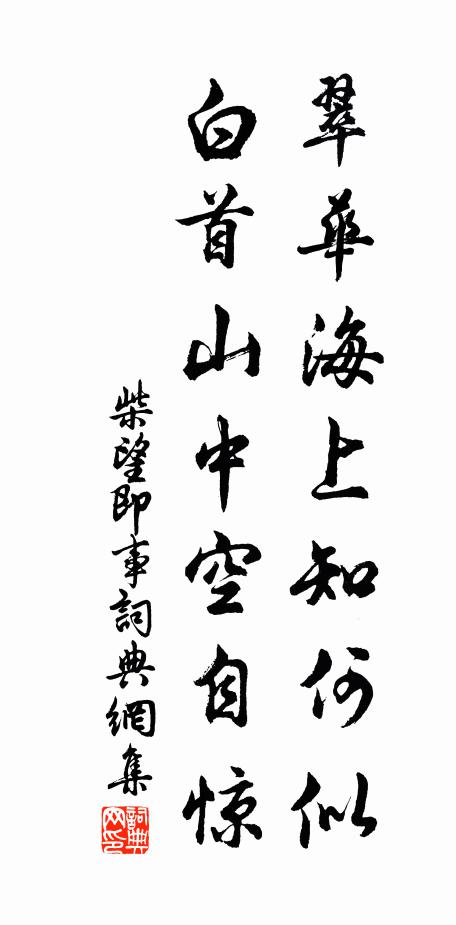 翠華海上知何似
白首山中空自惊
柴望即事詞典網集
詞典网印